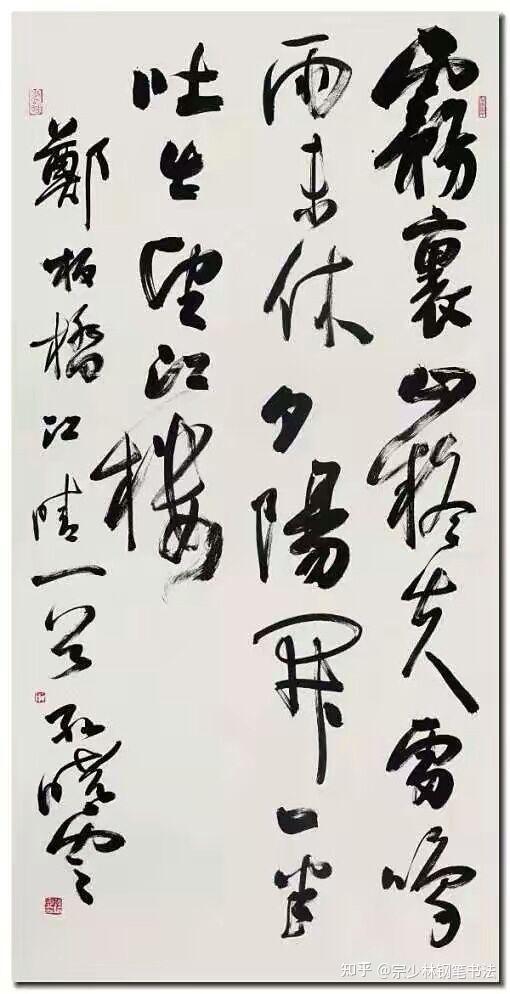 霧裏山疑失雷鳴
雨未休夕陽開一半
吐出望江樓
鄭板橋江晴一首 孫曉雲
知乎 @宗少林钢笔书法